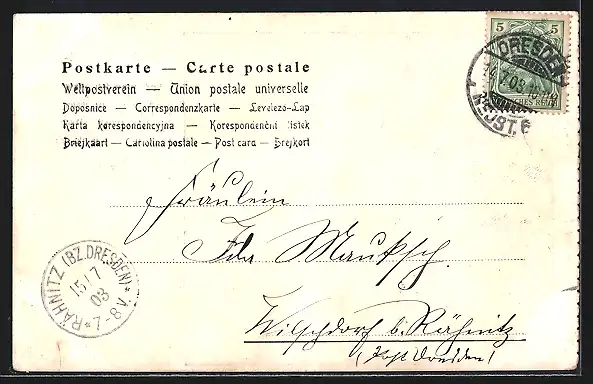 Postkarte — Carte postale
Weltpostverein — Union postale universelle
Dopisnice — Correspondenzkarte — Levelezo-Lap
Karta korespondencyjna — Korespondenční lístek
Briefkaart — Cartolina postale — Post card — Brejkort
5 5
DRESDEN
NEUST. 6
Fräulein
Ida Mauksch.
Wilschdorf b. Rähnitz
(Post Dresden)
RÄHNITZ (BZ. DRESDEN)
15/7
03
*7-8 V.*